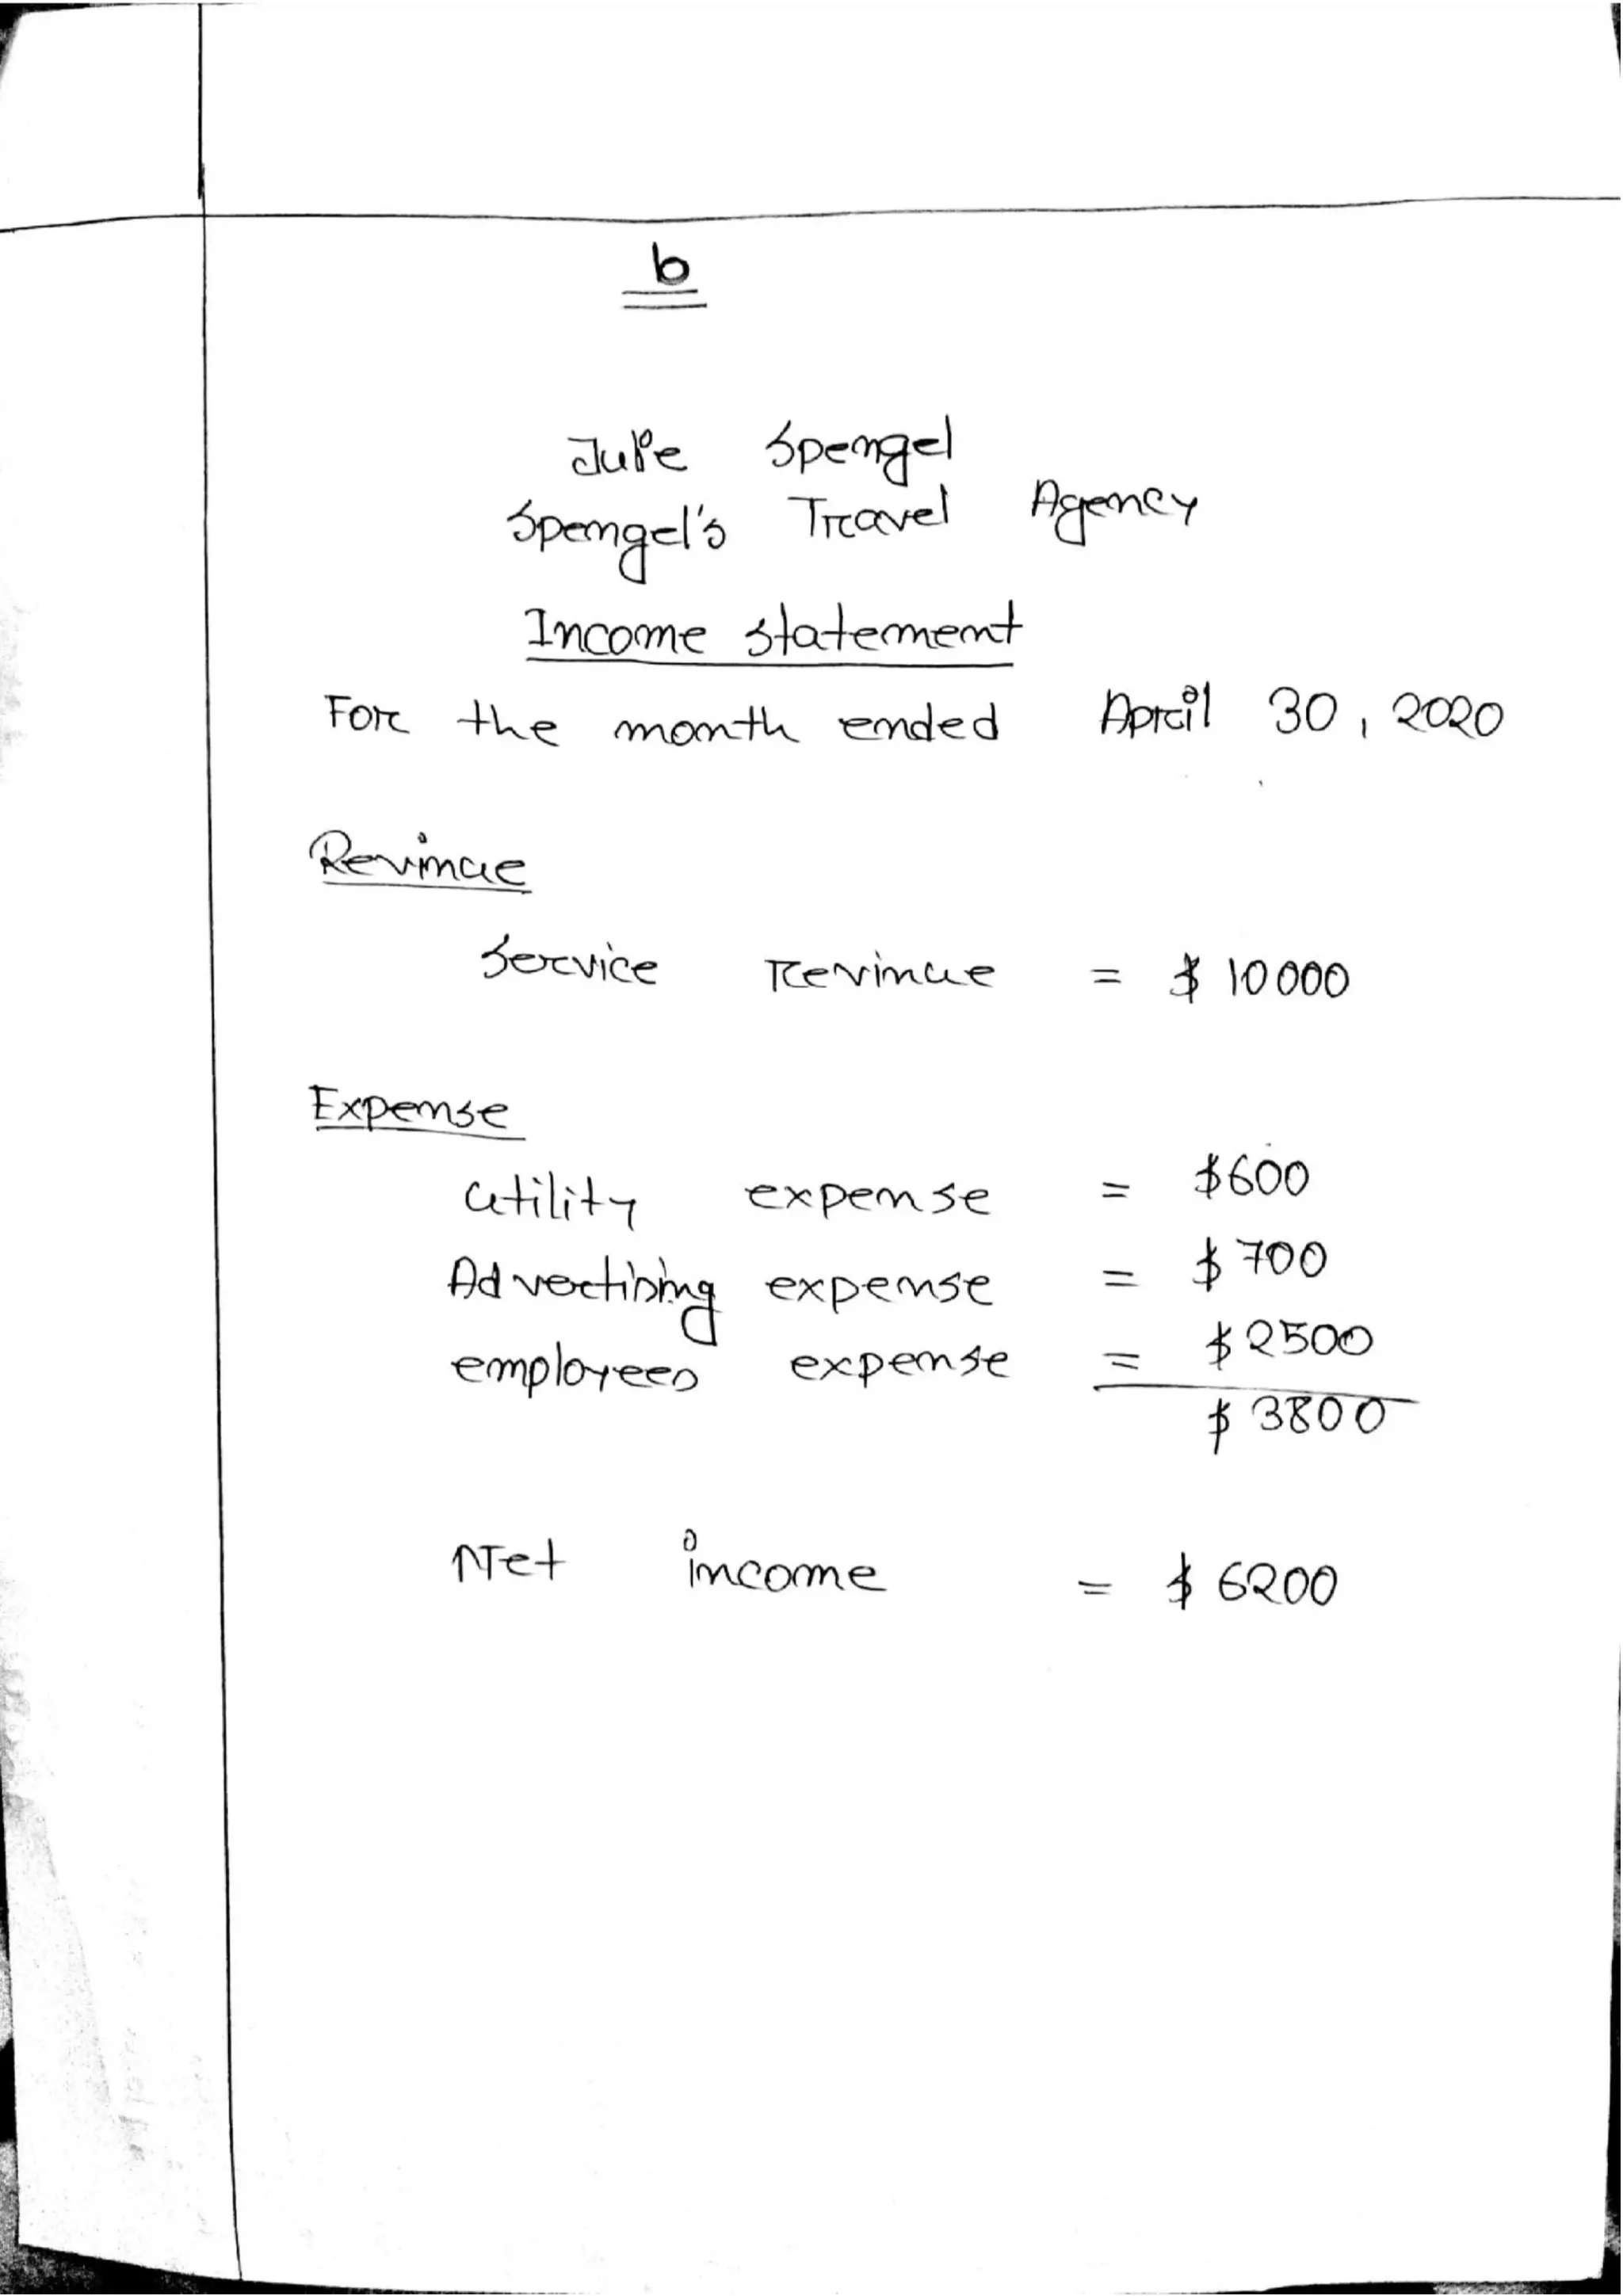 b
Julie Spengel
Spengel's Travel Agency
Income statement
For the month ended April 30, 2020
Revinue
Service revinue = $ 10000
Expense
utility expense = $600
Advertising expense = $ 700
employees expense = $2500
$ 3800
Net income = $ 6200